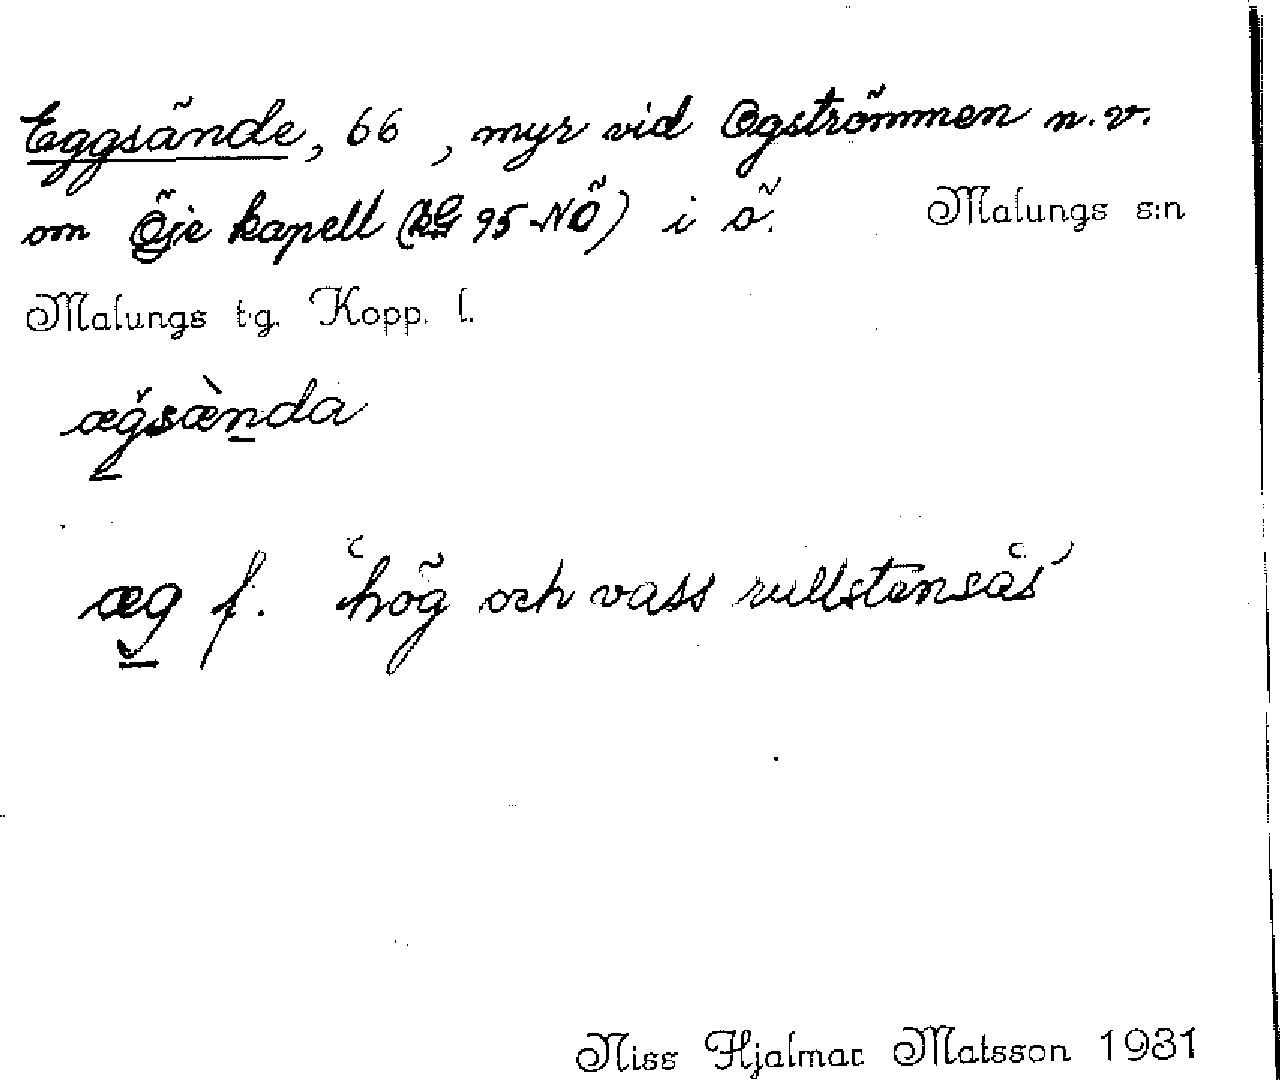 Eggsände, 66 , myr vid Ogströmmen n.v.
om Öje kapell (KG 95 NÖ) i ö. Malungs s:n
Malungs t.g. Kopp. l.
ægsænda
æg f. 'hög och vass rullstensås'
Niss Hjalmar Matsson 1931